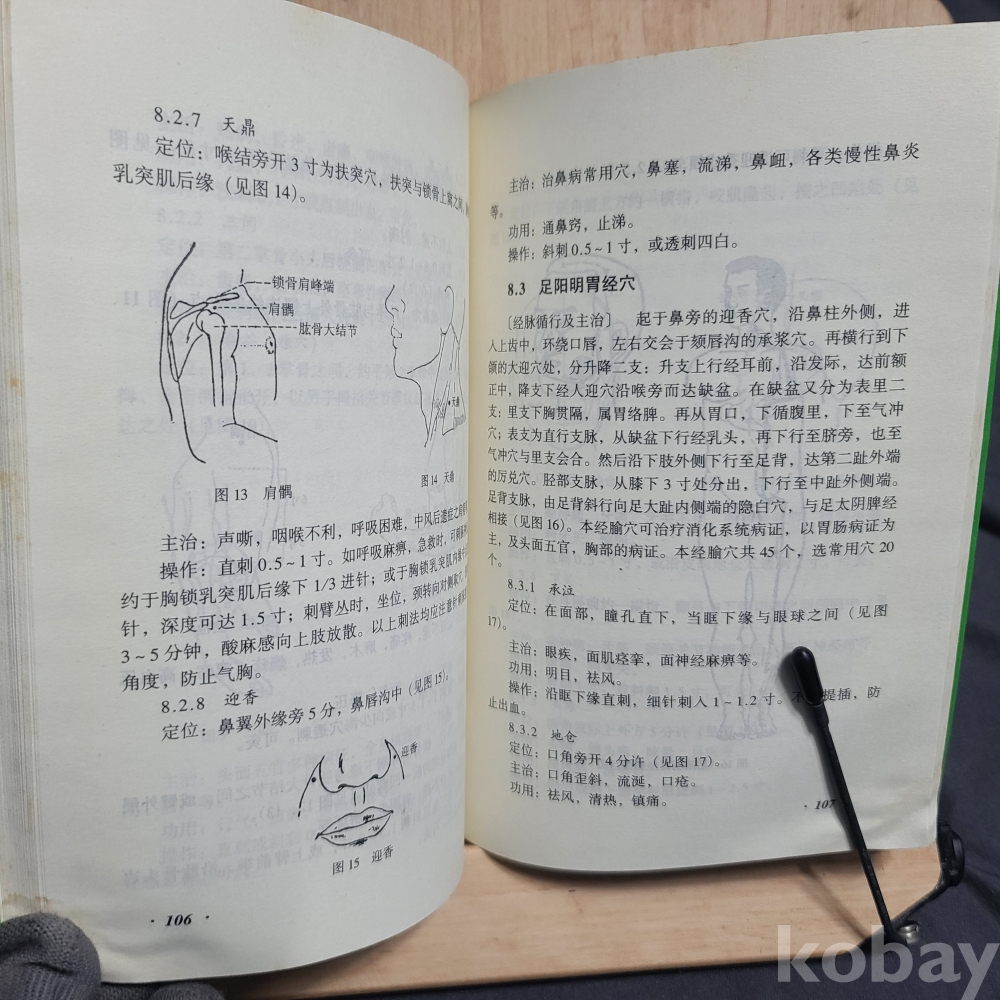 8.2.7 天鼎
定位：喉结旁开3寸为扶突穴，扶突与锁骨上窝之间，
乳突肌后缘（见图14）。
锁骨肩峰端
肩髃
肱骨大结节
天鼎
图13 肩髃
图14 天鼎
主治：声嘶，咽喉不利，呼吸困难，中风后遗症之
操作：直刺0.5~1寸。如呼吸麻痹，急救时，可
约于胸锁乳突肌后缘下1/3进针；或于胸锁乳突肌
针，深度可达1.5寸；刺臂丛时，坐位，颈转向对侧
3~5分钟，酸麻感向上肢放散。以上刺法均应注意针
角度，防止气胸。
8.2.8 迎香
定位：鼻翼外缘旁5分，鼻唇沟中（见图15）。
迎香
图15 迎香
· 106 ·
主治：治鼻病常用穴，鼻塞，流涕，鼻衄，各类慢性鼻炎
等。
功用：通鼻窍，止涕。
操作：斜刺0.5~1寸，或透刺四白。
8.3 足阳明胃经穴
〔经脉循行及主治〕 起于鼻旁的迎香穴，沿鼻柱外侧，进
入上齿中，环绕口唇，左右交会于颏唇沟的承浆穴。再横行到下
颌的大迎穴处，分升降二支：升支上行经耳前，沿发际，达前额
正中，降支下经人迎穴沿喉旁而达缺盆。在缺盆又分为表里二
支：里支下胸贯隔，属胃络脾。再从胃口，下循腹里，下至气冲
穴；表支为直行支脉，从缺盆下行经乳头，再下行至脐旁，也至
气冲穴与里支会合。然后沿下肢外侧下行至足背，达第二趾外端
的厉兑穴。胫部支脉，从膝下3寸处分出，下行至中趾外侧端。
足背支脉，由足背斜行向足大趾内侧端的隐白穴，与足太阴脾经
相接（见图16）。本经腧穴可治疗消化系统病证，以胃肠病证为
主，及头面五官，胸部的病证。本经腧穴共45个，选常用穴20
个。
8.3.1 承泣
定位：在面部，瞳孔直下，当眶下缘与眼球之间（见图
17）。
主治：眼疾，面肌痉挛，面神经麻痹等。
功用：明目，祛风。
操作：沿眶下缘直刺，细针刺入1~1.2寸。不 提插，防
止出血。
8.3.2 地仓
定位：口角旁开4分许（见图17）。
主治：口角歪斜，流涎，口疮。
功用：祛风，清热，镇痛。
· 107
kobay